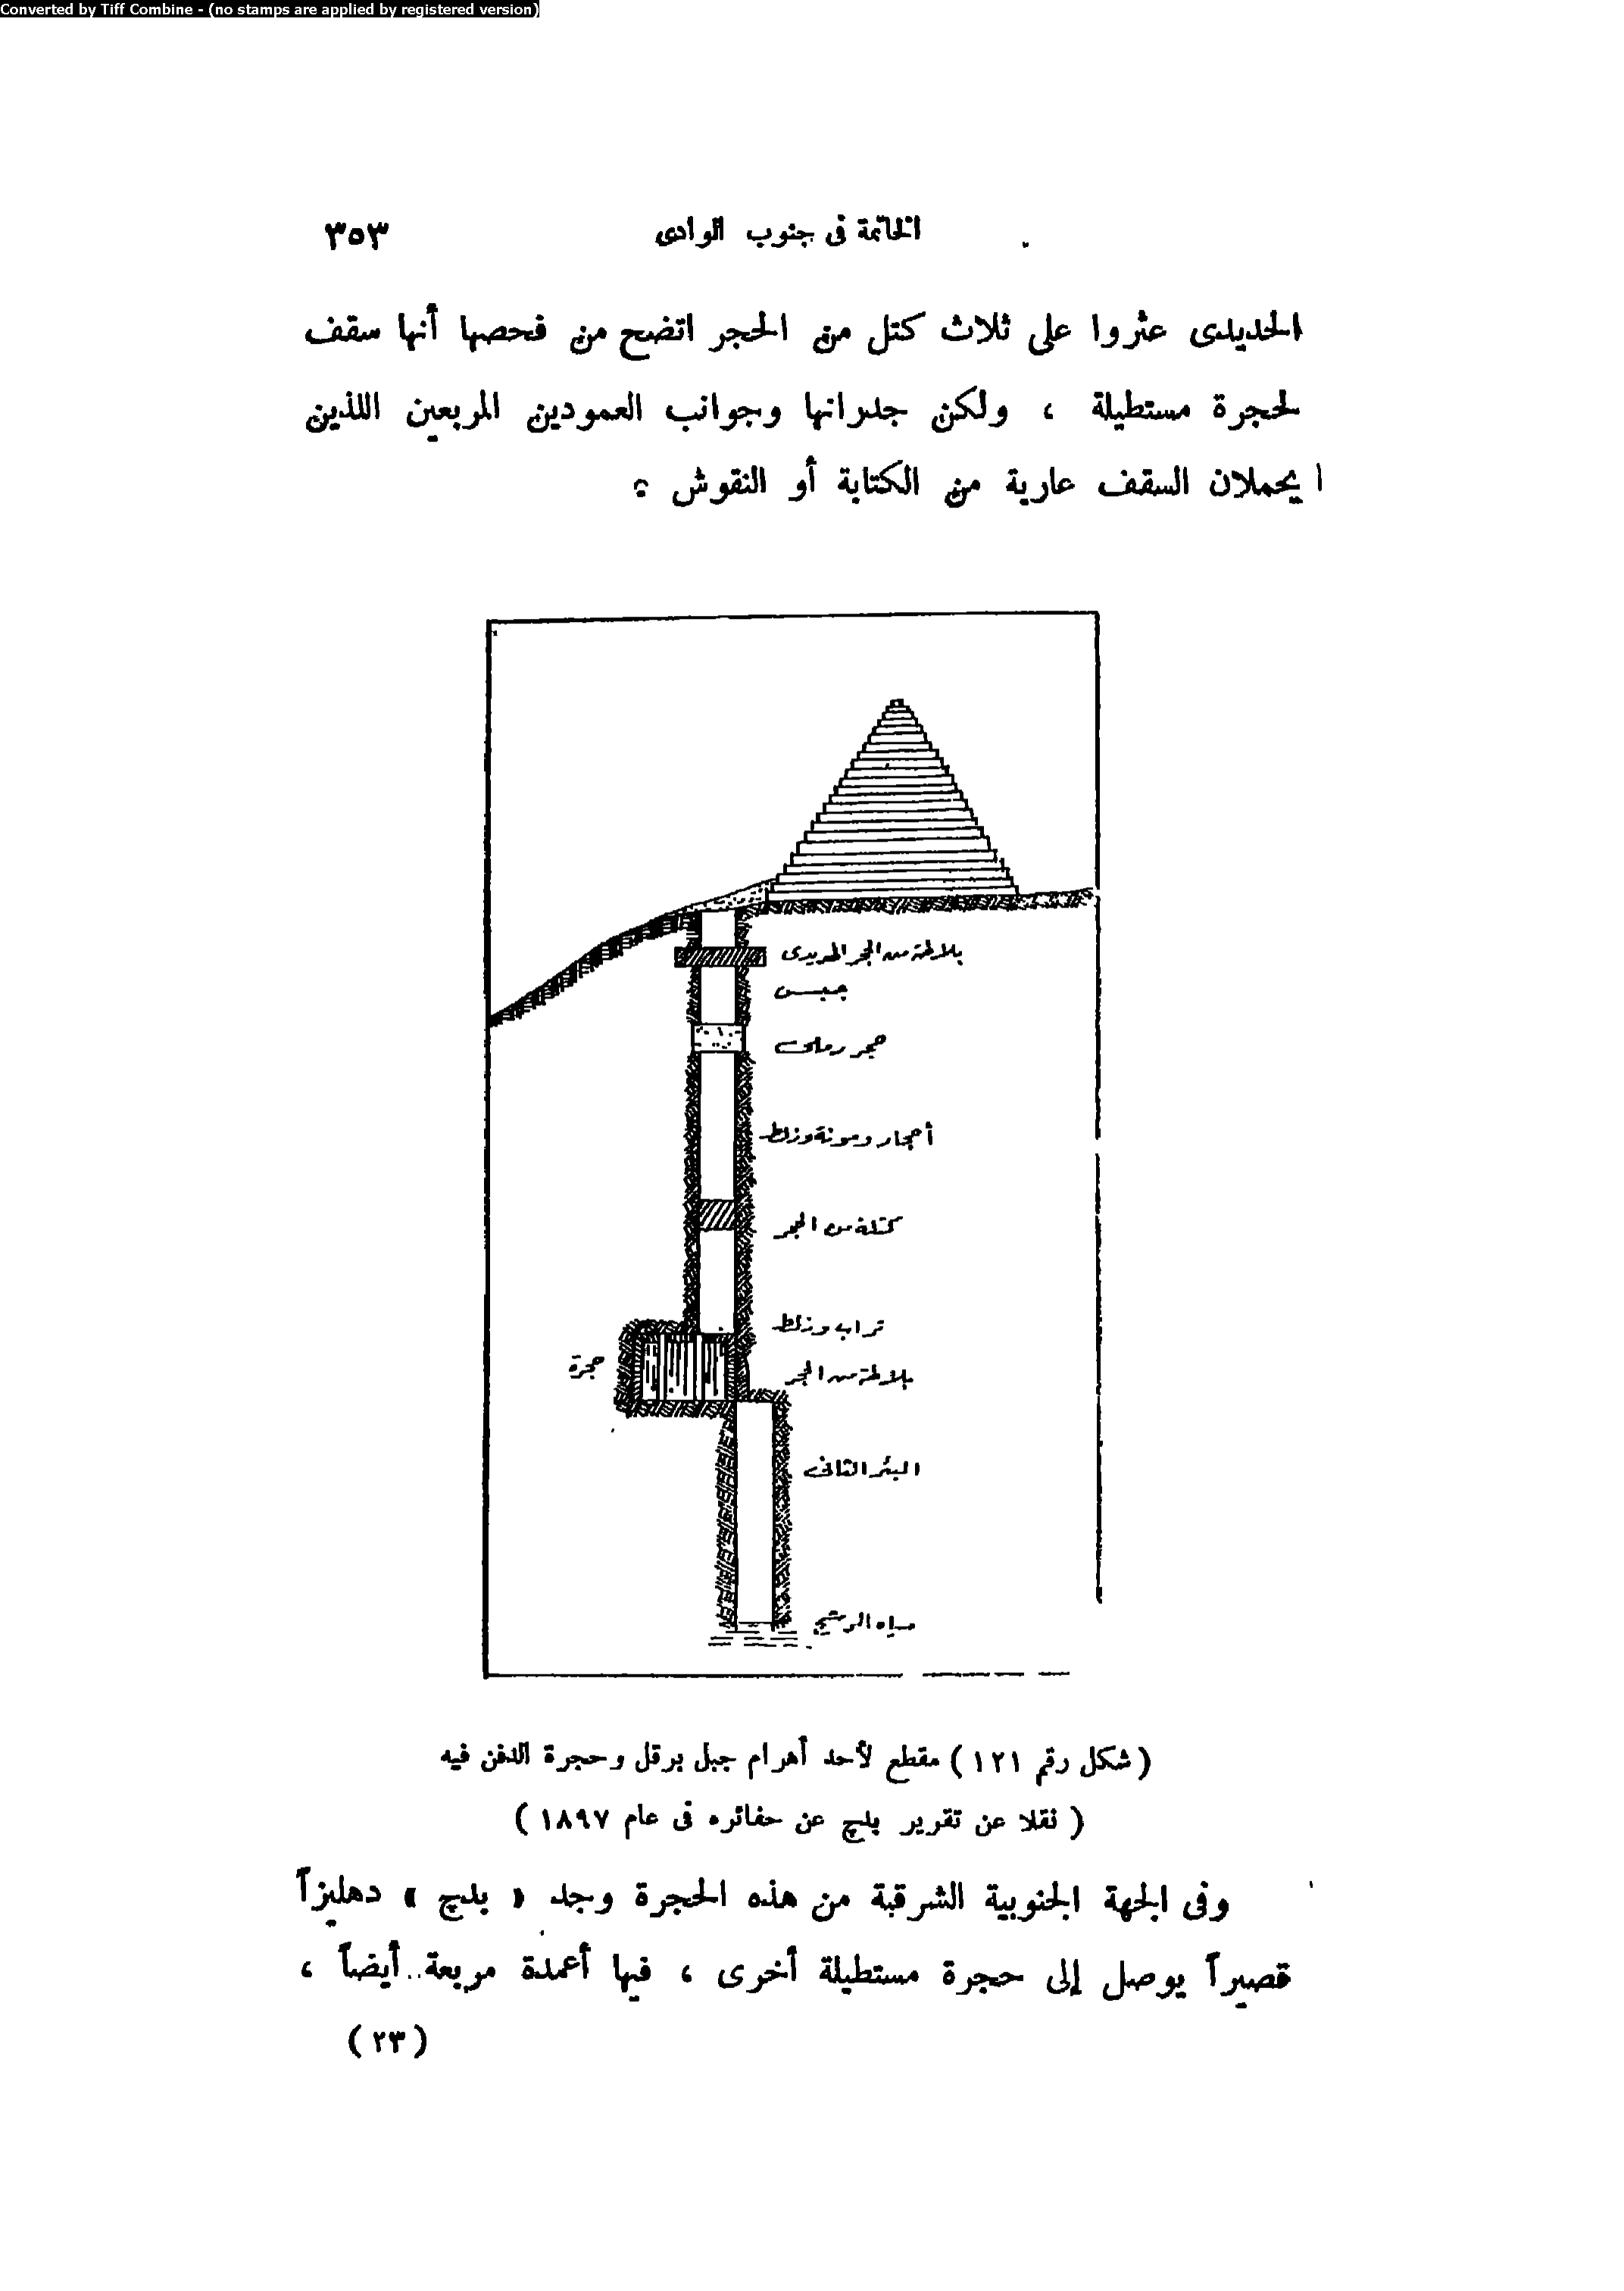 Converted by Tiff Combine - (no stamps are applied by registered version)
الخاتمة فى جنوب الوادى ٣٥٣
الحديدى عثروا على ثلاث كتل من الحجر اتضح من فحصها أنها سقف
لحجرة مستطيلة ، ولكن جدرانها وجوانب العمودين المربعين اللذين
يحملان السقف عارية من الكتابة أو النقوش :
بلاطة من الحجر الحديدى
جبس
حجر رملى
أحجار ومونة وزلط
كتلة من الحجر
تراب وزلط
حجرة
بلاطة من الحجر
البئر الثانى
مياه الرشح
( شكل رقم ١٢١ ) مقطع لأحد أهرام جبل برقل وحجرة الدفن فيه
( نقلا عن تقرير بلچ عن حفائره فى عام ١٨٩٧ )
وفى الجهة الجنوبية الشرقية من هذه الحجرة وجد « بلچ » دهليزاً
قصيراً يوصل إلى حجرة مستطيلة أخرى ، فيها أعمدة مربعة أيضاً ،
( ٢٣ )